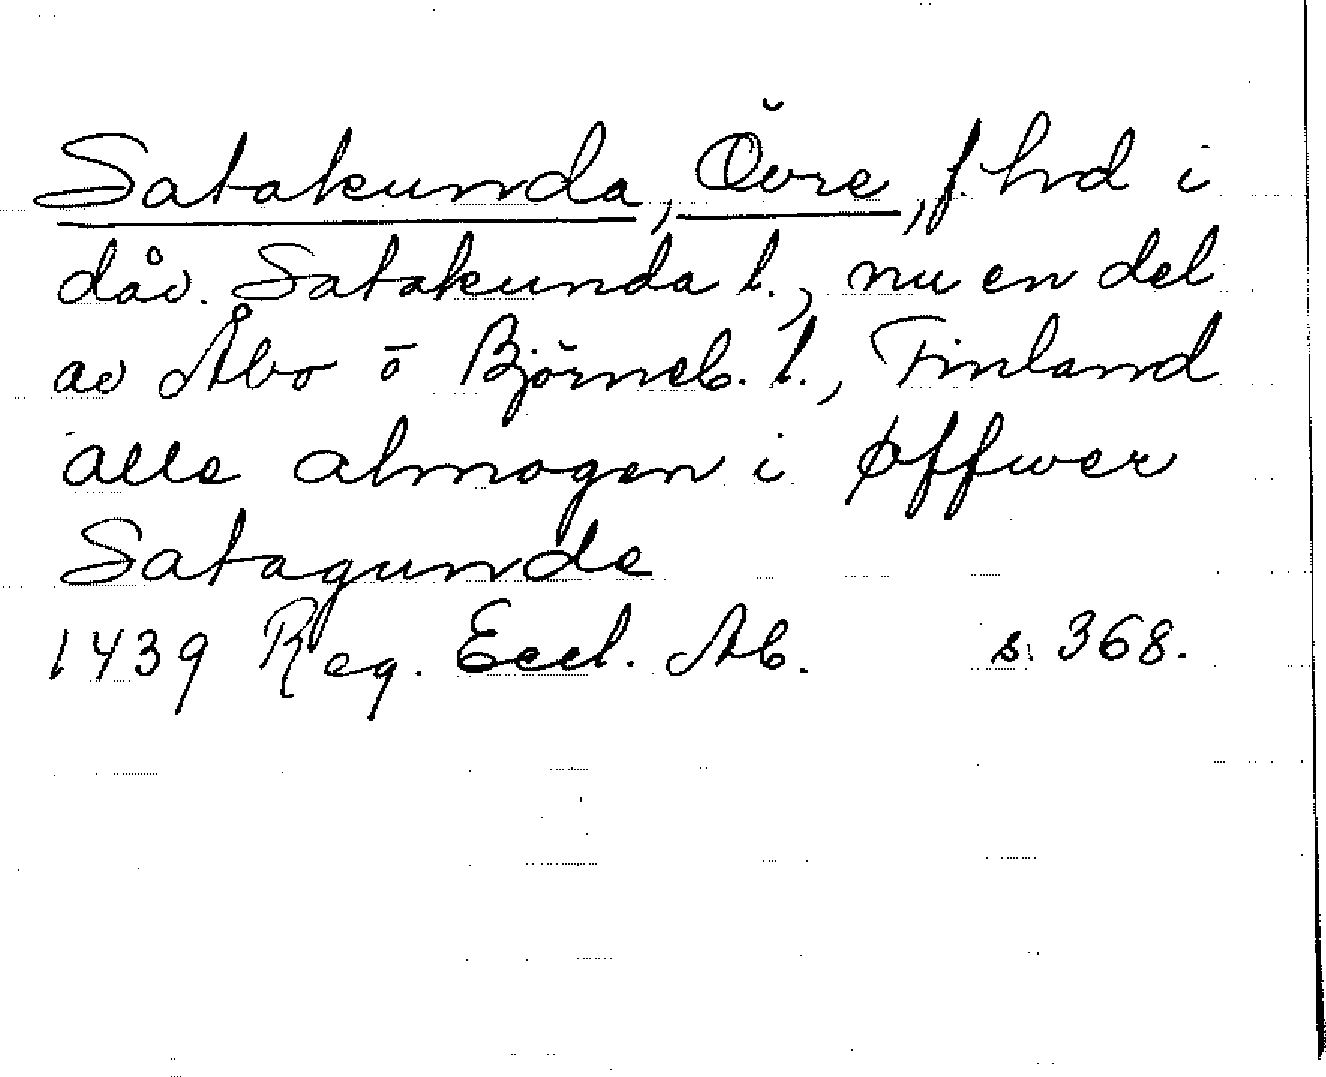 Satakunda, Övre, f. hrd i
dåv. Satakunda l., nu en del
av Åbo o Björneb. l., Finland
alle almogen i øffwer
Satagunde
1439 Reg. Eccl. Ab. s. 368.